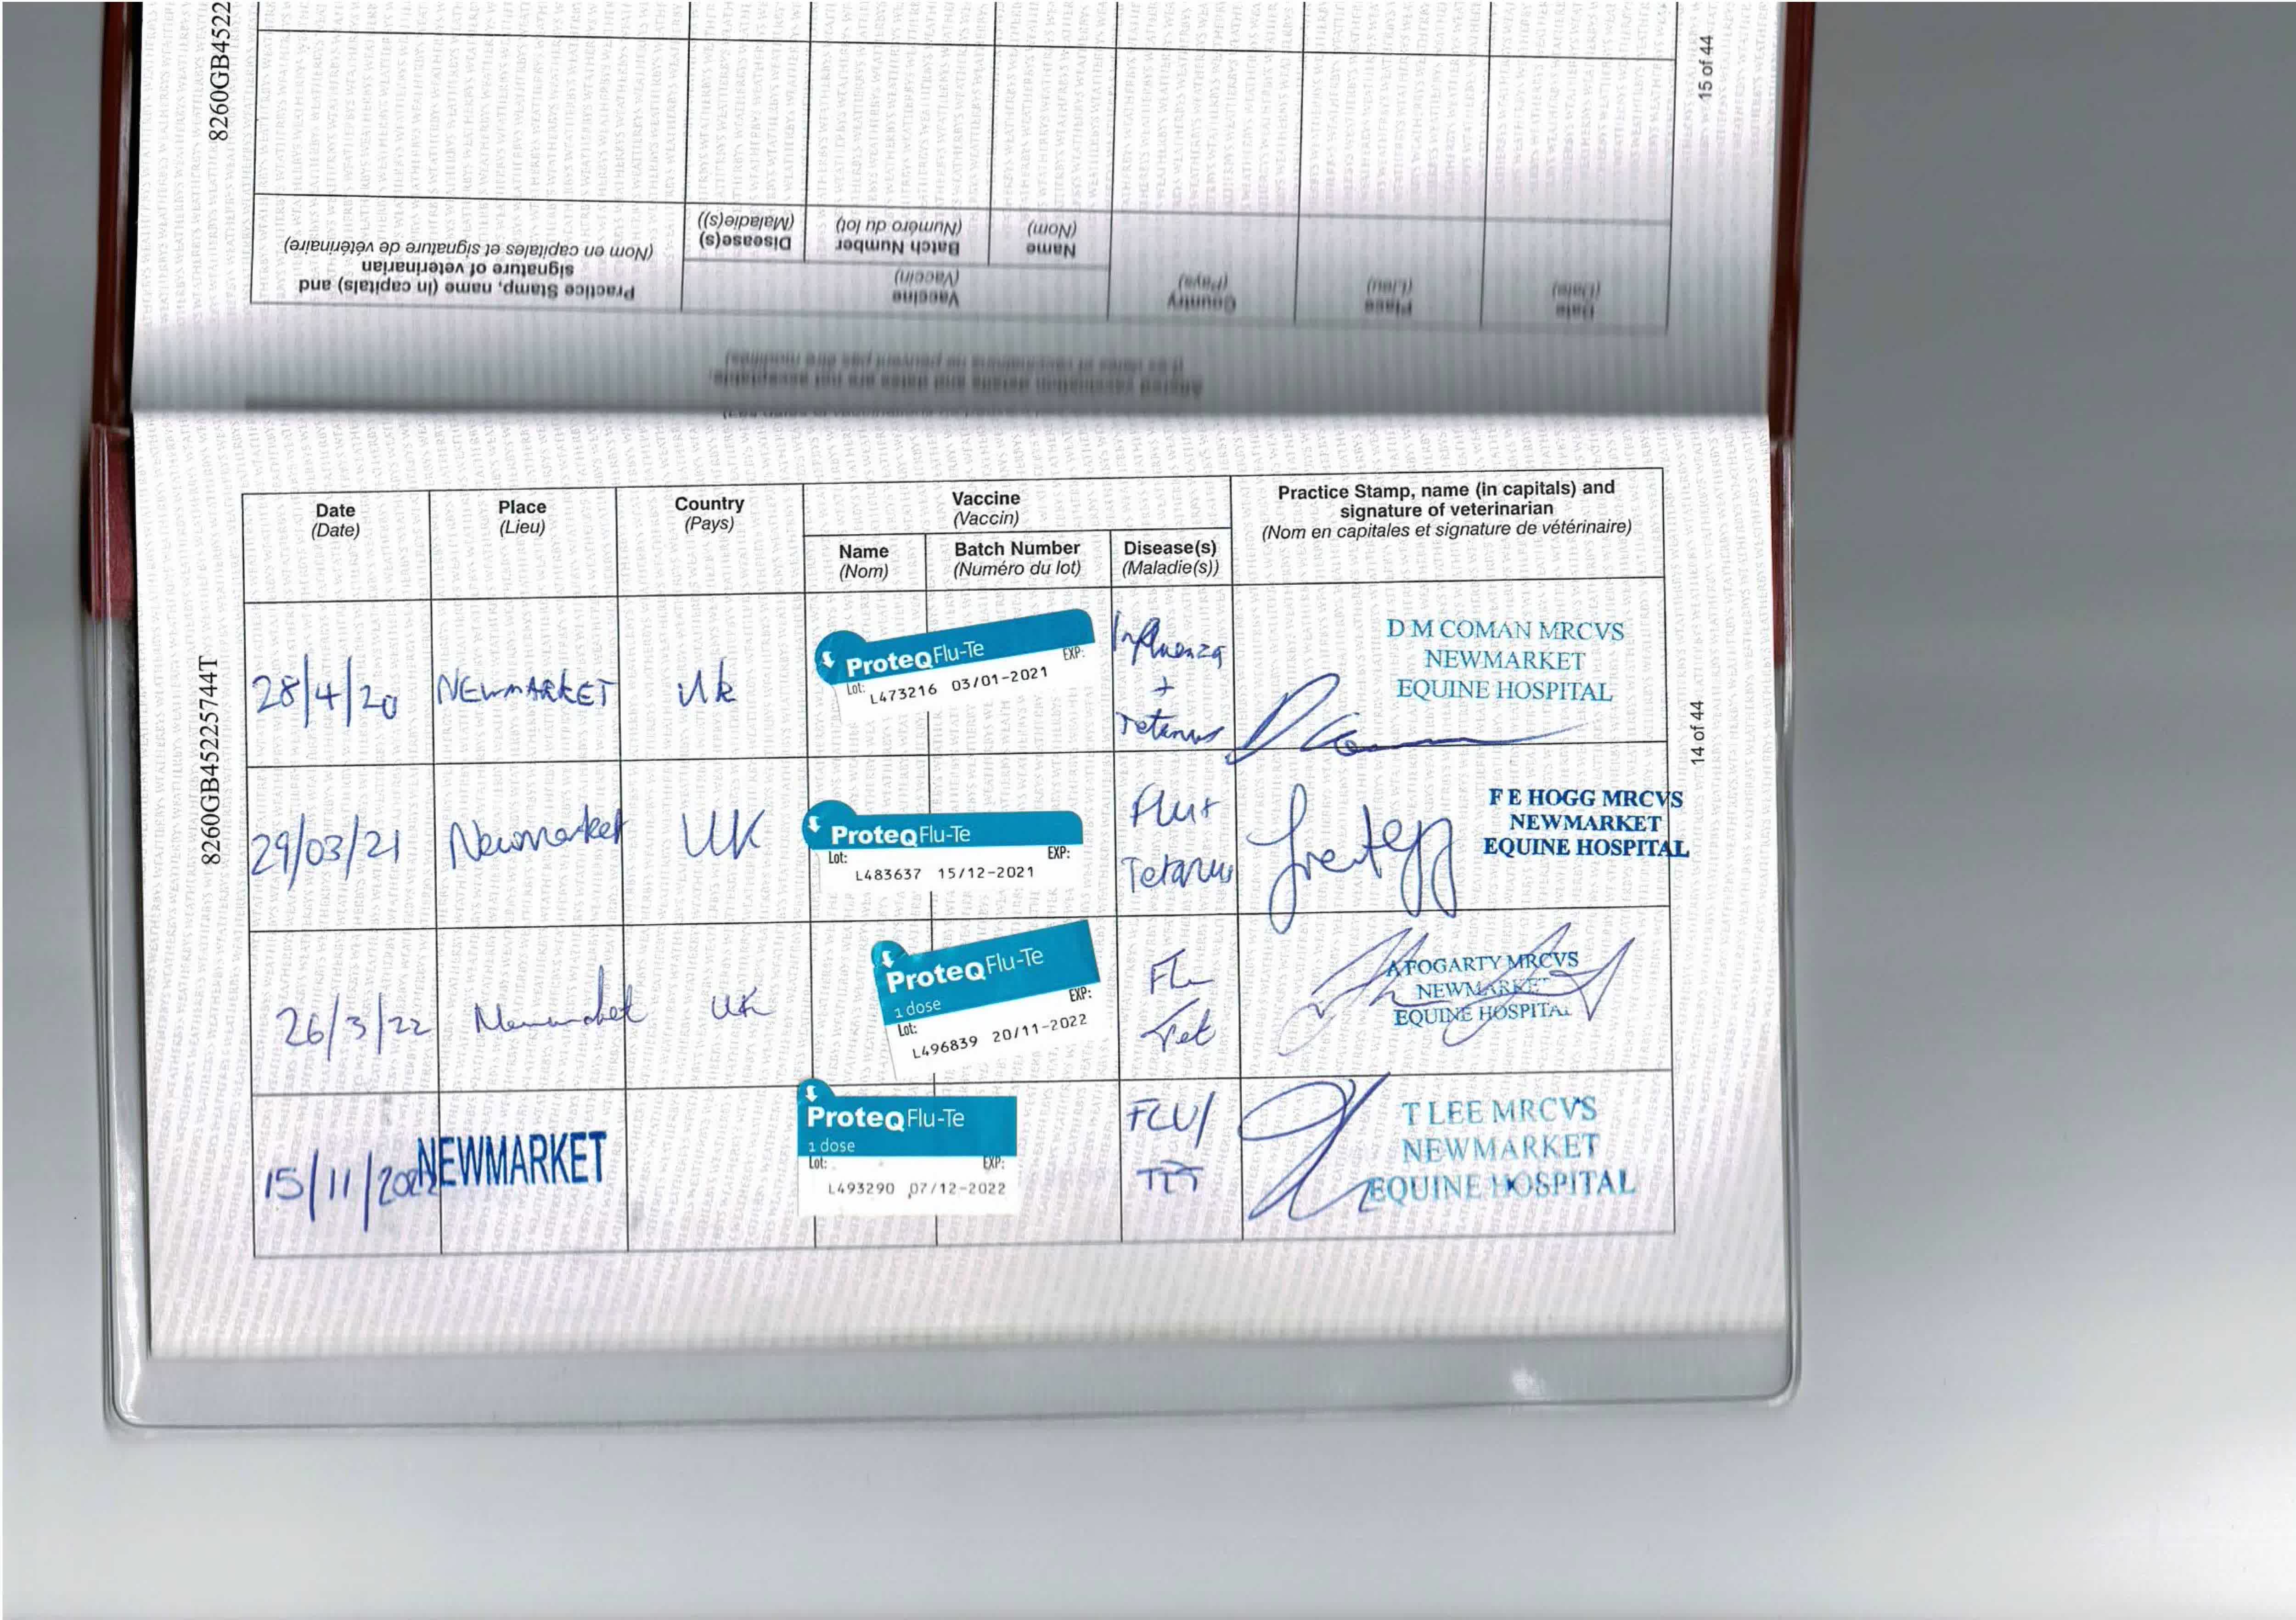 8260GB4522
15 of 44
Practice Stamp, name (in capitals) and
signature of veterinarian
(Nom en capitales et signature de vétérinaire)
Vaccine
(Vaccin)
Disease(s)
(Maladie(s))
Batch Number
(Numéro du lot)
Name
(Nom)
Country
(Pays)
Place
(Lieu)
Date
(Date)
Altered vaccination details and dates are not acceptable.
(Les dates et vaccinations ne peuvent pas être modifiés)
8260GB452257744T
14 of 44
Date
(Date)
Place
(Lieu)
Country
(Pays)
Vaccine
(Vaccin)
Name
(Nom)
Batch Number
(Numéro du lot)
Disease(s)
(Maladie(s))
Practice Stamp, name (in capitals) and
signature of veterinarian
(Nom en capitales et signature de vétérinaire)
28/4/20
NEWMARKET
UK
ProteqFlu-Te
Lot: EXP:
L473216 03/01-2021
Influenza
+
Tetanus
D M COMAN MRCVS
NEWMARKET
EQUINE HOSPITAL
29/03/21
Newmarket
UK
ProteqFlu-Te
Lot: EXP:
L483637 15/12-2021
Flu+
Tetanus
F E HOGG MRCVS
NEWMARKET
EQUINE HOSPITAL
26/3/22
Newmarket
UK
ProteqFlu-Te
1 dose
Lot: EXP:
L496839 20/11-2022
Flu
Tet
A FOGARTY MRCVS
NEWMARKET
EQUINE HOSPITAL
15/11/2022
NEWMARKET
ProteqFlu-Te
1 dose
Lot: EXP:
L493290 07/12-2022
FLU/
TET
T LEE MRCVS
NEWMARKET
EQUINE HOSPITAL